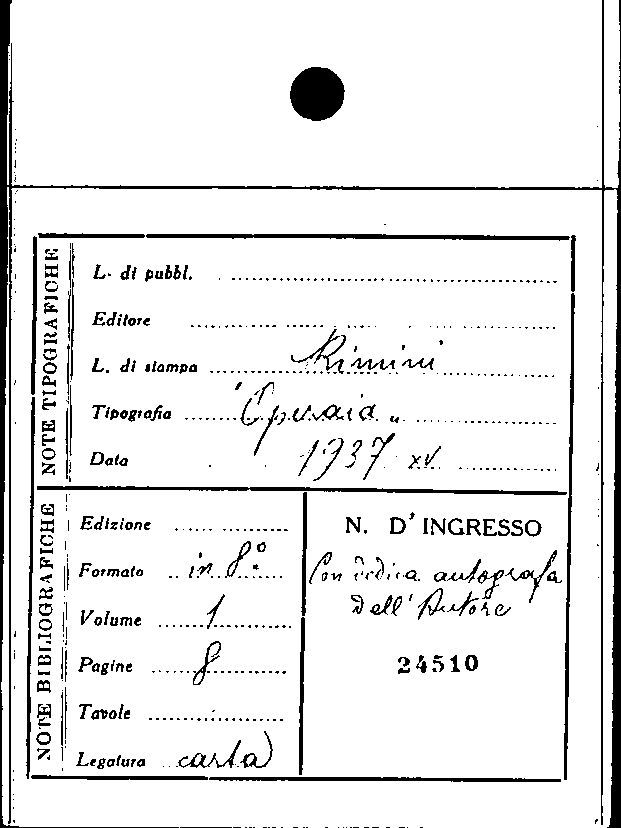 NOTE TIPOGRAFICHE
L. di pubbl.
Editore
L. di stampa Rimini
Tipografia "Operaia"
Data 1937 XV
NOTE BIBLIOGRAFICHE
Edizione
Formato in 8°
Volume 1
Pagine 8
Tavole
Legatura carta
N. D'INGRESSO
Con dedica autografa
Dell'Autore
24510